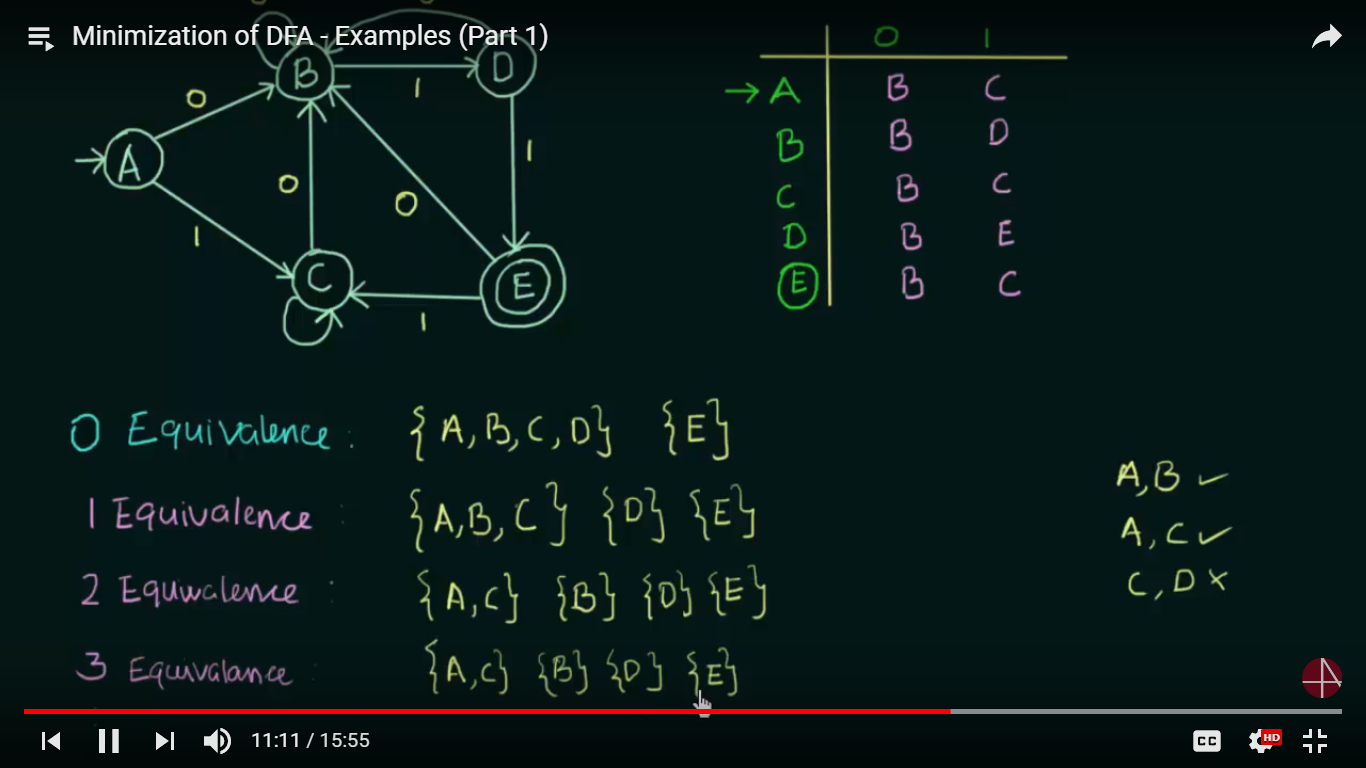 Minimization of DFA - Examples (Part 1)
B
D
1
0
A
1
0
0
1
C
E
1
0 1
→ A B C
B B D
C B C
D B E
E B C
0 Equivalence : {A, B, C, D} {E}
1 Equivalence : {A, B, C} {D} {E}
2 Equivalence : {A, C} {B} {D} {E}
3 Equivalance : {A, C} {B} {D} {E}
A, B ✓
A, C ✓
C, D ×
11:11 / 15:55
CC
HD